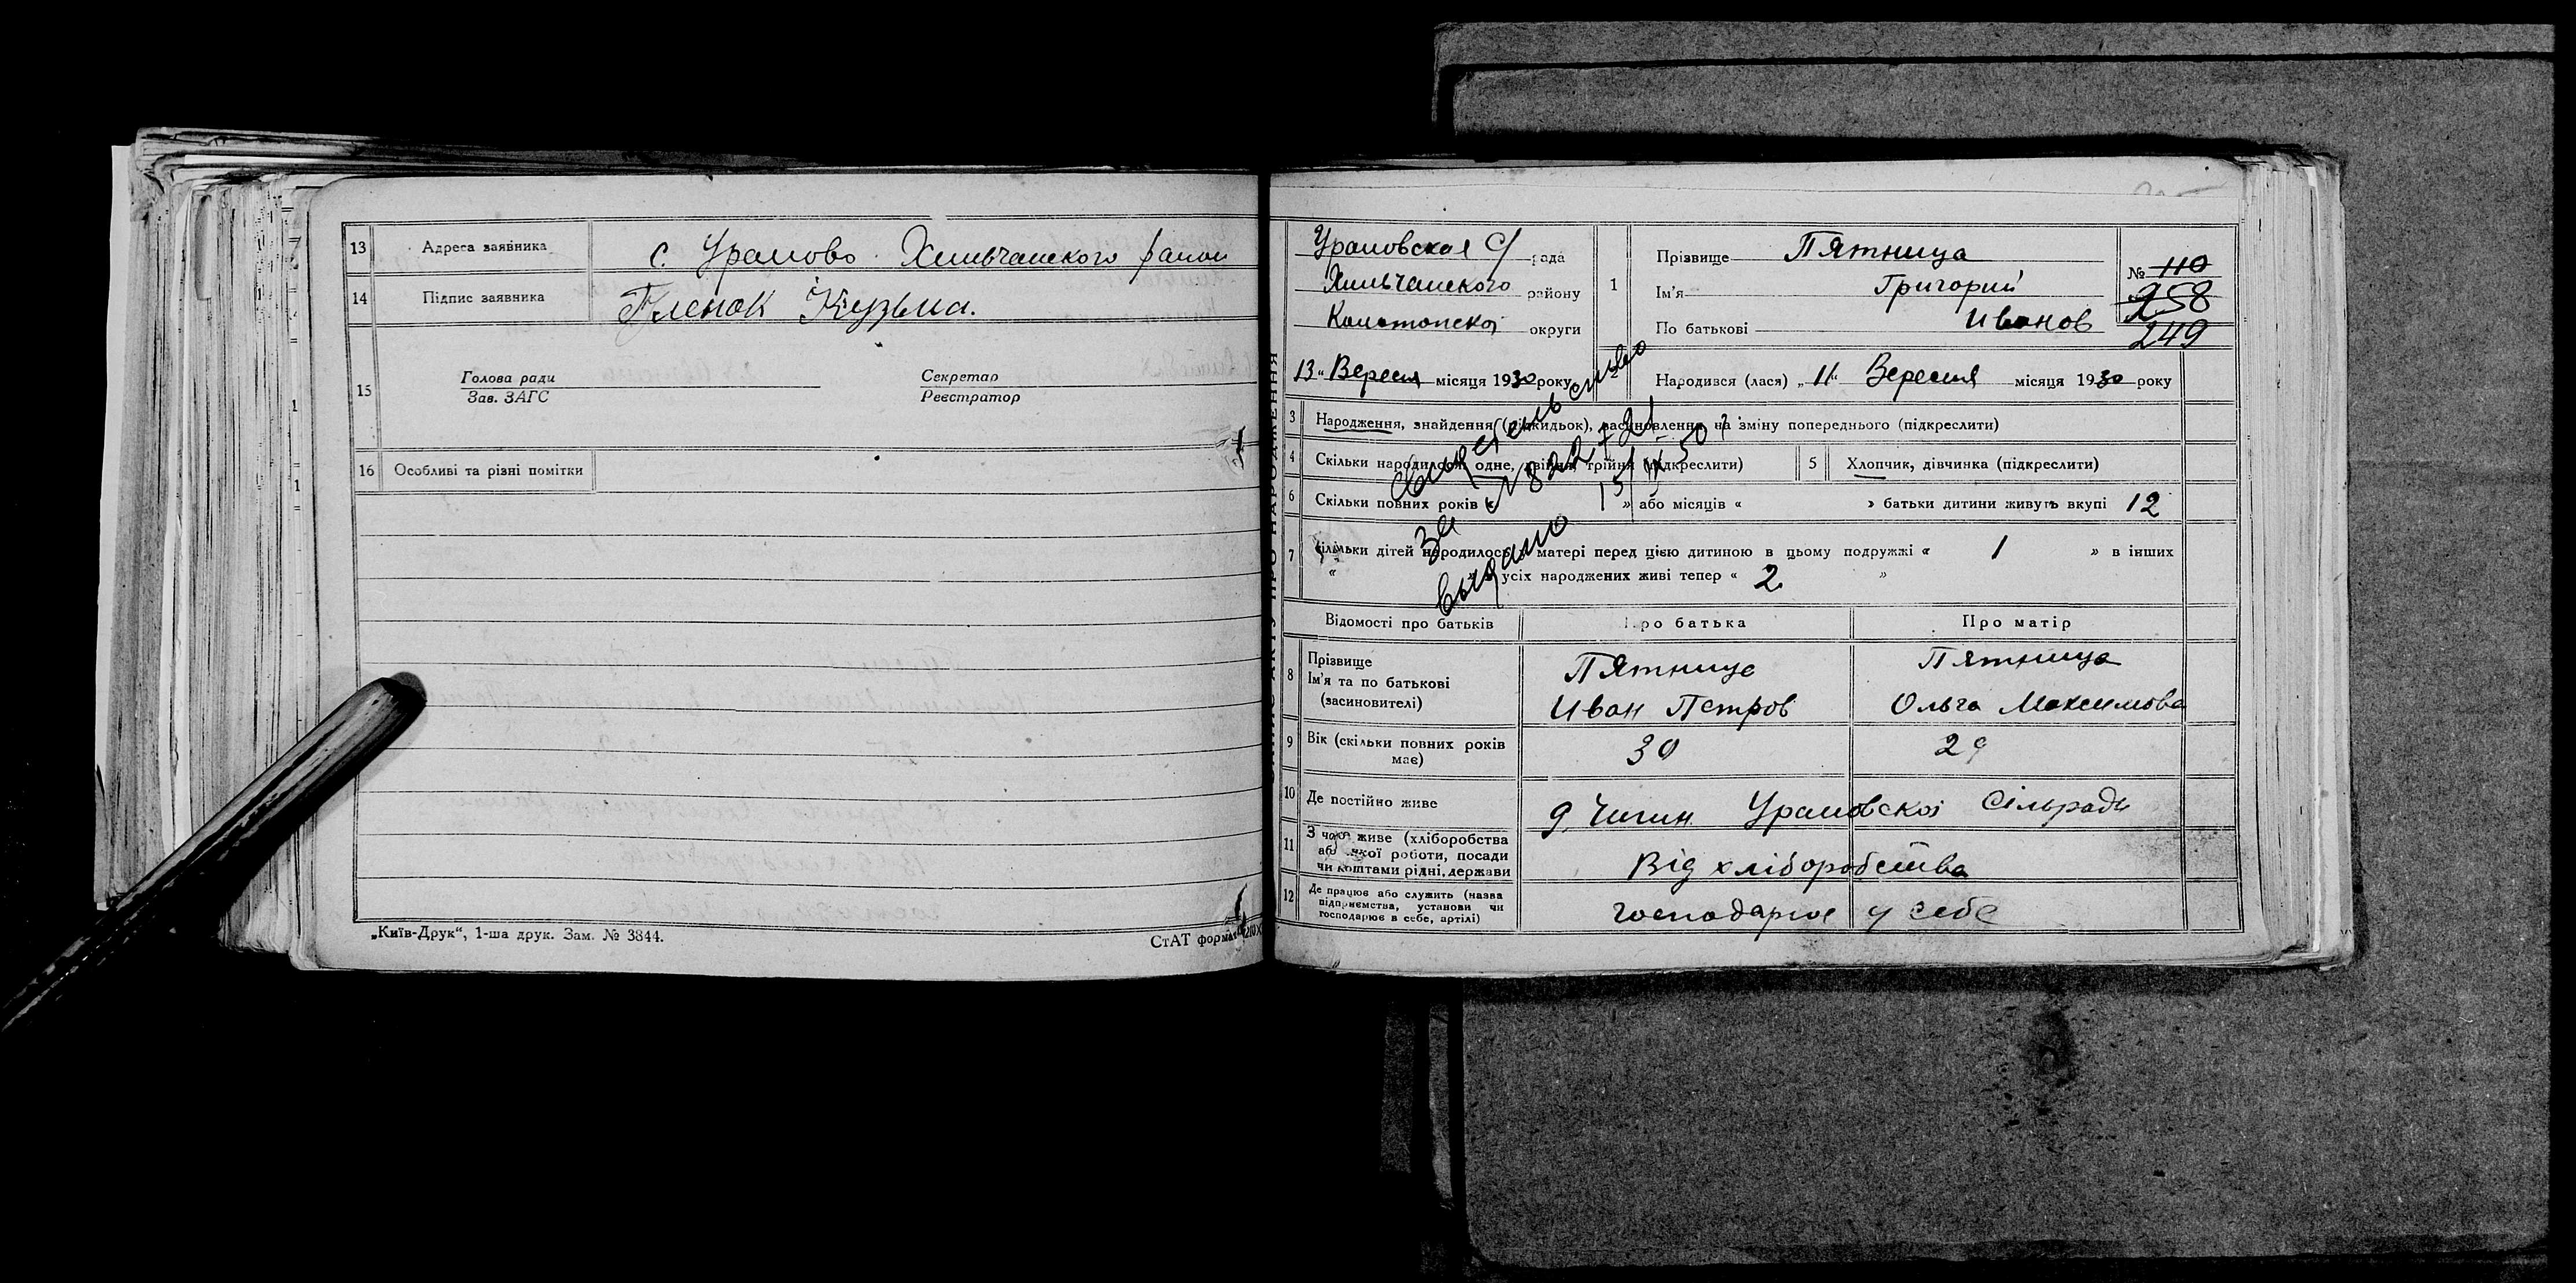 13 Адреса заявника с. Урамово Хильчанского район
14 Підпис заявника Гленок Кузьма.
15 Голова ради Секретар
Зав. ЗАГС Реєстратор
16 Особливі та різні помітки
„Київ-Друк“, 1-ша друк. Зам. № 3844.
СтАТ форма
Урамовская С/ рада
Хильчанского району
Конотопскої округи
1 Прізвище Пятница
Ім'я Григорий
По батькові Иванов
№ 110
258
249
13 „ Вересня місяця 1930 року
2 Народився (лася) „ 11 “ Вересня місяця 1930 року
3 Народження, знайдення (підкидьок), засиновлення, на зміну попереднього (підкреслити)
4 Скільки народилося: одне, двійня, трійня (підкреслити)
5 Хлопчик, дівчинка (підкреслити)
6 Скільки повних років « » або місяців « » батьки дитини живуть вкупі 12
7 Скільки дітей народилося у матері перед цією дитиною в цьому подружжі « 1 » в інших
« » усіх народжених живі тепер « 2 »
выдано
за
свидетельство
Відомості про батьків Про батька Про матір
8 Прізвище
Ім'я та по батькові
(засиновителі)
Пятница
Иван Петров
Пятница
Ольга Максимова
9 Вік (скільки повних років має) 30 29
10 Де постійно живе д. Чигин Урамовскої Сільради
11 З чого живе (хліборобства
або якої роботи, посади
чи коштами рідні, держави
Від хліборобства
12 Де працює або служить (назва
підприємства, установи чи
господарює в себе, артілі)
господарює у себе